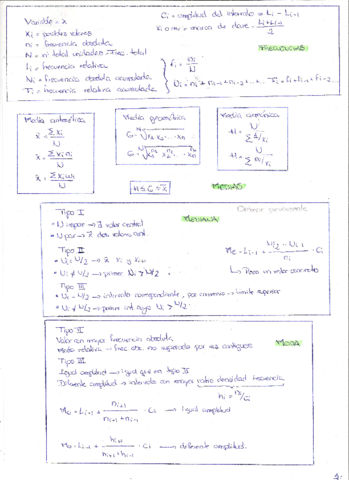 Variable = x
Xi = posibles valores
ni = frecuencia absoluta
N = nº total unidades = Frec. total
fi = frecuencia relativa
Ni = frecuencia absoluta acumulada
Fi = frecuencia relativa acumulada
Ci = amplitud del intervalo = Li - Li-1
Xi o mc = marca de clase = Li + Li-1 / 2
FRECUENCIAS
fi = ni / N
Ni = ni + ni-1 + ni-2 + ... Fi = fi + fi-1 + fi-2 ...
Media aritmética
x̄ = Σ xi / N
x̄ = Σ xi ni / N
x̄ = Σ xi wi / N
Media geométrica
G = N√ x1 · x2 ... xn
Media armónica
H = N / Σ 1/xi
H = N / Σ ni/xi
H ≤ G ≤ x̄
MEDIAS
Tipo I
• N impar → ∃ valor central
• N par → ∃ dos valores
MEDIANA
Tipo II
• Ni = N/2 → x̄ xi y xi+1
• Ni ≠ N/2 → primer Ni > N/2
Me = Li-1 + N/2 - Ni-1 / ni · Ci
↳ Para un valor concreto
Tipo III
• Ni = N/2 → intervalo correspondiente, por convenio → límite superior
• Ni ≠ N/2 → primer int. cuya Ni > N/2
Tipo II
Valor con mayor frecuencia absoluta
MODA
Moda relativa → frec. abs. no superada por sus contiguos
Tipo III
Igual amplitud → igual que en tipo II
Diferente amplitud → intervalo con mayor densidad frecuencia
hi = ni / Ci
Mo = Li-1 + ni+1 / ni+1 + ni-1 · Ci → igual amplitud
Mo = Li-1 + hi+1 / hi+1 + hi-1 · Ci → diferente amplitud.